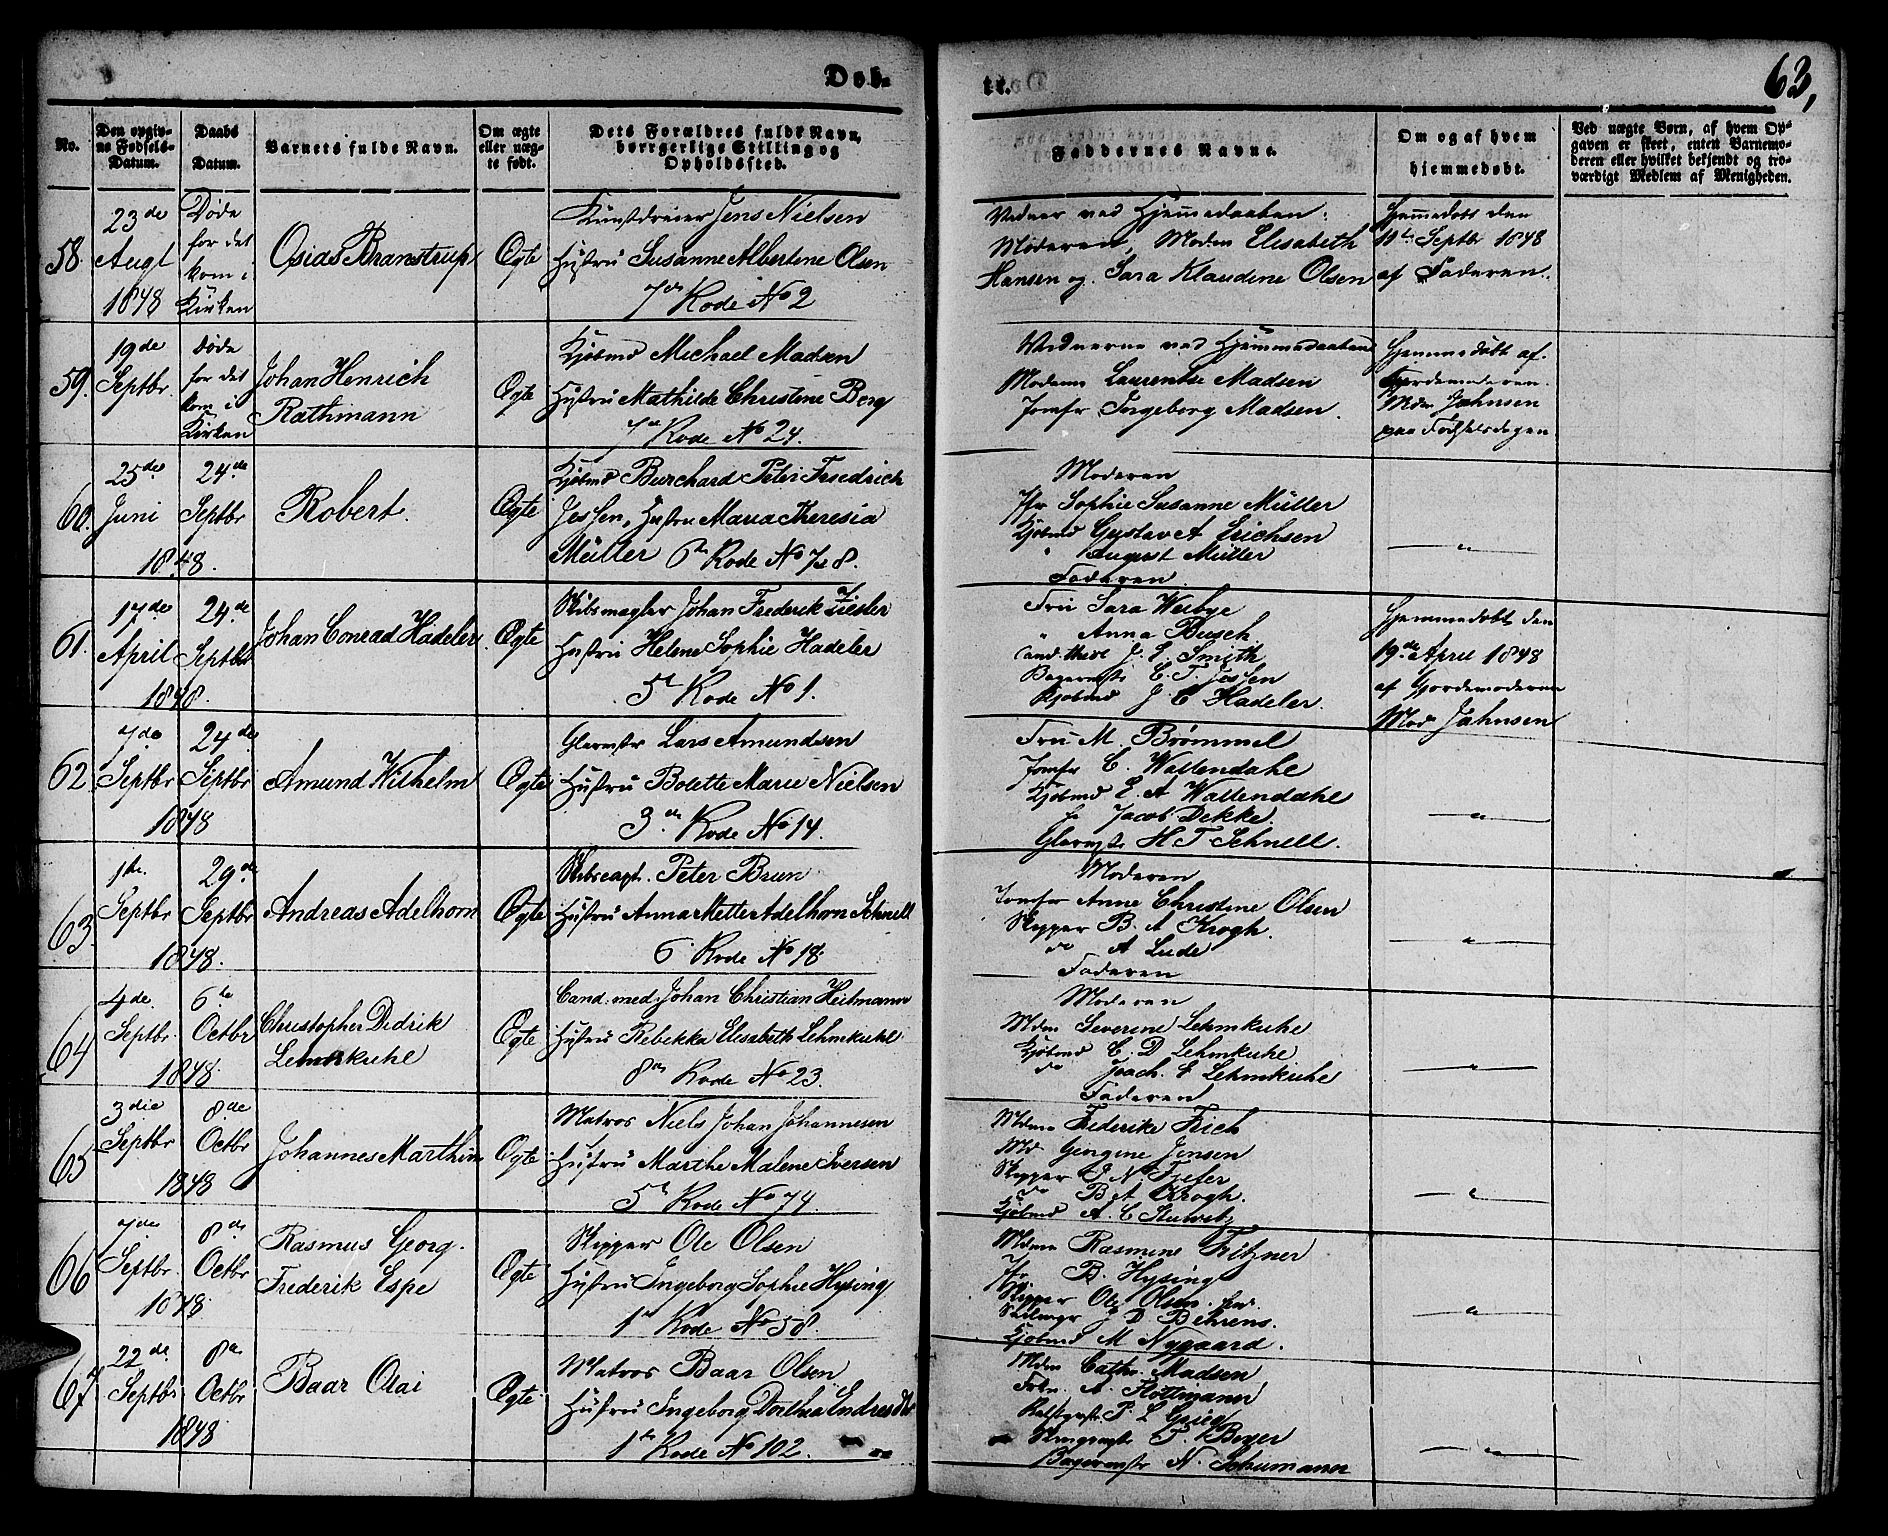 Døb-
te.
63,
No.
Den opgiv-
ne Fødsels-
Datum.
Daabs
Datum.
Barnets fulde Navn.
Om ægte
eller uæg-
te født.
Dets Forældres fulde Navn,
borgerlige Stilling og
Opholdssted.
Faddernes Navne.
Om og af hvem
hjemmedøbt.
Ved uægte Børn, af hvem Op-
gaven er skeet, enten Barnemo-
deren eller hvilket bekjendt og tro-
værdigt Medlem af Menigheden.
58
23de
Augt
1848
Døde
for det
kom i
Kirken
Osias Branstrup
Ægte
Kunstdreier Jens Nielsen
Hustru Susanne Albertine Olsen
7de Rode No 2
Vidner ved Hjemmedaaben:
Moderen, Madm Elisabeth
Hansen og Sara Klaudine Olsen
Hjemmedøbt den
11te Septbr 1848
af Faderen.
59.
19de
Septbr.
Døde
for det
kom i
Kirken
Johan Henrich
Rathmann
Ægte
Kjøbmd Michael Madsen
Hustru Mathilde Christine Berg
7de Rode No 24.
Vidnerne ved Hjemmedaaben
Madame Laurentse Madsen
Jomfr Ingeborg Madsen.
Hjemmedøbt af
Gjordemoderen
Mdm Jahnsen
paa Fødselsdagen
60.
25de
Juni
24de
Septbr
1848.
Robert.
Ægte
Kjøbmd Burchard Peter Friedrich
Jessen, Hustru Maria Theresia
Müller 6te Rode No 7 & 8.
Moderen
Jfr Sophie Susanne Müller
Kjøbmd Gustav A Erichsen
" August Müller
Faderen.
"
61.
17de
April
24de
Septbr
1848.
Johan Conrad Hadeler.
Ægte
Skibsmægler Johan Frederik Ziesler
Hustru Helene Sophie Hadeler
5te Rode No 1.
Fru Sara Wesbye
" Anna Busch.
Cand. theol J. L. Smith
Bagermstr C. F. Jessen
Kjøbmd J C Hadeler.
Hjemmedøbt den
19de April 1848
af Gjordemoderen
Mad Jahnsen
62
7de
Septbr
24de
Septbr
1848
Amund Wilhelm
Ægte
Glarmstr Lars Amundsen
Hustru Bolette Marie Nielsen
3die Rode No 14.
Fru M. Brømmel
Jomfr C. Wallendahl
Kjøbmd E. A Wallendahl
Jacob Dekke.
Glarmstr H T Schnell.
"
63.
1te
Septbr
29de
Septbr
1848.
Andreas Adelhorn
Ægte
Skibscapt. Peter Brun
Hustru Anna Mette Adelhorn Schnell
6 Rode No 18.
Moderen
Jomfr Anne Christine Olsen
Skipper B. A Krogh.
do A Lude
Faderen
"
64
4de
Septbr.
6te
Octbr
1848.
Christopher Didrik
Lehmkuhl
Ægte
Cand: med. Johan Christian Heitmann
Hustru Rebekka Elisabeth Lehmkuhl
8de Rode No 23.
Moderen
Mdm Severine Lehmkuhl
Kjøbmd C. D Lehmkuhl
do Joach. E Lehmkuhl
Faderen
"
65
3die
Septbr
8de
Octbr
1848
Johannes Marthin
Ægte
Matros Niels Johan Johannesen
Hustru Marthe Malene Iversen
5te Rode No 74.
Mdme Frederike Frich
Md Gjørgine Jensen
Skipper N. Freser
do B A Krogh.
Kjøbmd A. C Stuwitz
"
66
7de
Septbr.
8de
Octbr
1848.
Rasmus Georg.
Frederik Espe
Ægte
Skipper Ole Olsen
Hustru Ingeborg Sophie Hysing
1te Rode No 58.
Mdme Rasmine Fitzner
Jfr B. Hysing
Skipper Ole Olsen
J D Behrens.
Kjøbmd M Nygaard.
"
67
22de
Septbr
8de
Octbr
1848
Baar Olai
Ægte
Matros Baar Olsen
Hustru Ingeborg Dorthea Endresdtr
1te Rode No 102.
Mdm Cathr. Madsen
A. Flottmann
P. L Grieg
F. Beyer
Bagermstr N. Schumann
"